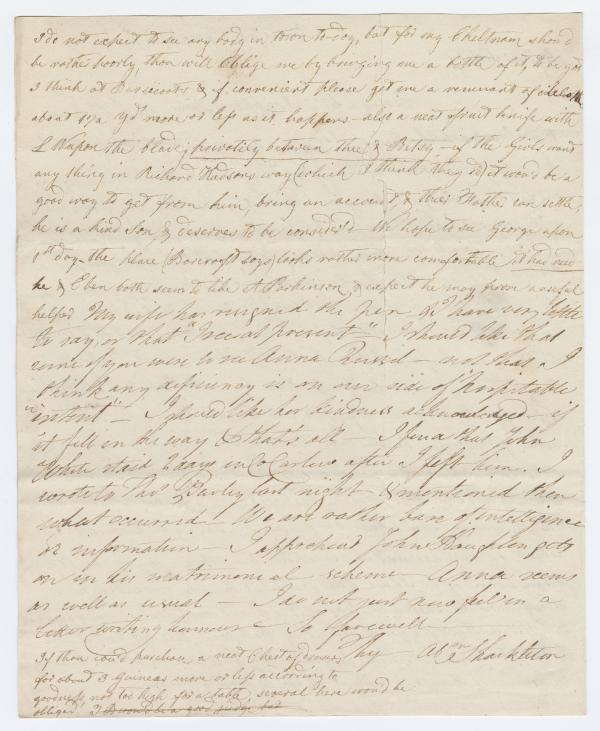 I do not expect to see any body in town to day, but for my Cheltnam should
be rather poorly, thou will oblige me by bringing me a bottle of it, to be got
I think at & if convenient please get me a remnant of
about 1½ yd more or less as it happens – also a neat fruit knife with
L W upon the blade, privately between thee & Betsy – if the Girls want
any thing in Richard Hudsons way (which I think they do) it would be a
good way to get from him, bring an account, & their Father can settle,
he is a kind Son & deserves to be consider'd – We hope to see George upon
1st day – the place (Barcroft says) looks rather more comfortable it had need
he & Eben both seem to like A Parkinson, & expect he may prove a useful
helper My wife has resigned the pen & I have very little
to say, or that "I see at present" – I should like that
some of you were to see Anna – not that I
think any deficiency is on our side of "hospitable
"intent" – I should like her kindness acknowledged – if
it fell in the way & that's all – I find that John
White staid 2 days in Co Carlow after I left him. I
wrote to Thos last night & mentioned then
what occurred – We are rather bare of intelligence
or information – I apprehend John Haughton gets
on in his matrimonial scheme – Anna seems
as well as usual – I do not just now feel in a
letter writing humour – So farewell
Thy Abm Shackleton
If thou could purchase a neat Chest of drawers
for about 3 Guineas more or less according to
goodness, not too high for a table, several here would be
obliged, I would be a good judge but